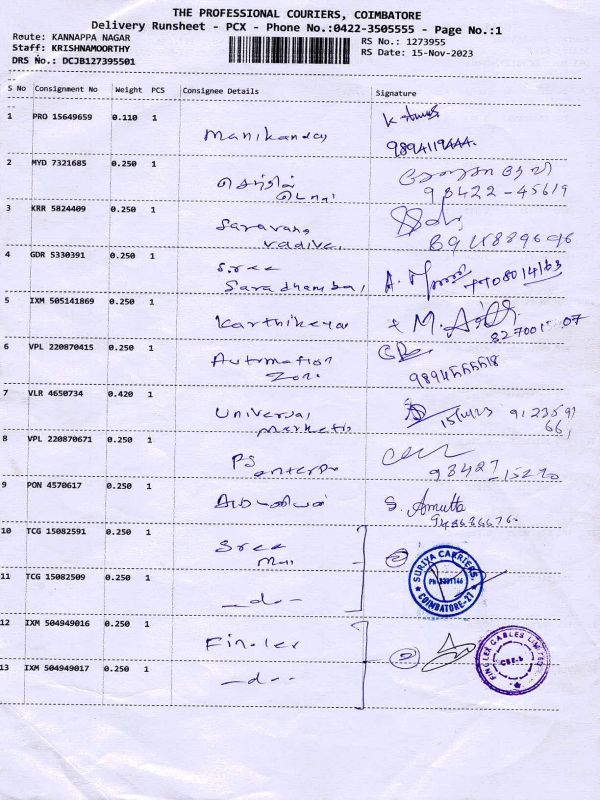 THE PROFESSIONAL COURIERS, COIMBATORE
Delivery Runsheet - PCX - Phone No.:0422-3505555 - Page No.:1
Route: KANNAPPA NAGAR
Staff: KRISHNAMOORTHY
DRS No.: DCJB127395501
RS No.: 1273955
RS Date: 15-Nov-2023
S No Consignment No Weight PCS Consignee Details Signature
1 PRO 15649659 0.110 1
Manikandan
2 MYD 7321685 0.250 1
98422-45619
3 KRR 5824409 0.250 1
Saravana
vadivel
4 GDR 5330391 0.250 1
Sree
Saradhambal
5 IXM 505141869 0.250 1
Karthikeya
6 VPL 220870415 0.250 1
Automation
Zone
7 VLR 4650734 0.420 1
Universal
8 VPL 220870671 0.250 1
PS
9 PON 4570617 0.250 1
S. Amutha
10 TCG 15082591 0.250 1
Sree
SURIYA CARRIERS,
COIMBATORE-27
11 TCG 15082509 0.250 1
-do-
12 IXM 504949016 0.250 1
Finolex
FINOLEX CABLES LIMITED
13 IXM 504949017 0.250 1
-do-